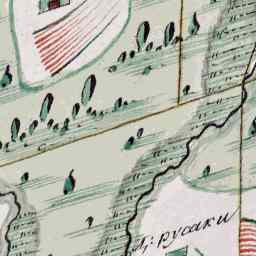 Д: русаки